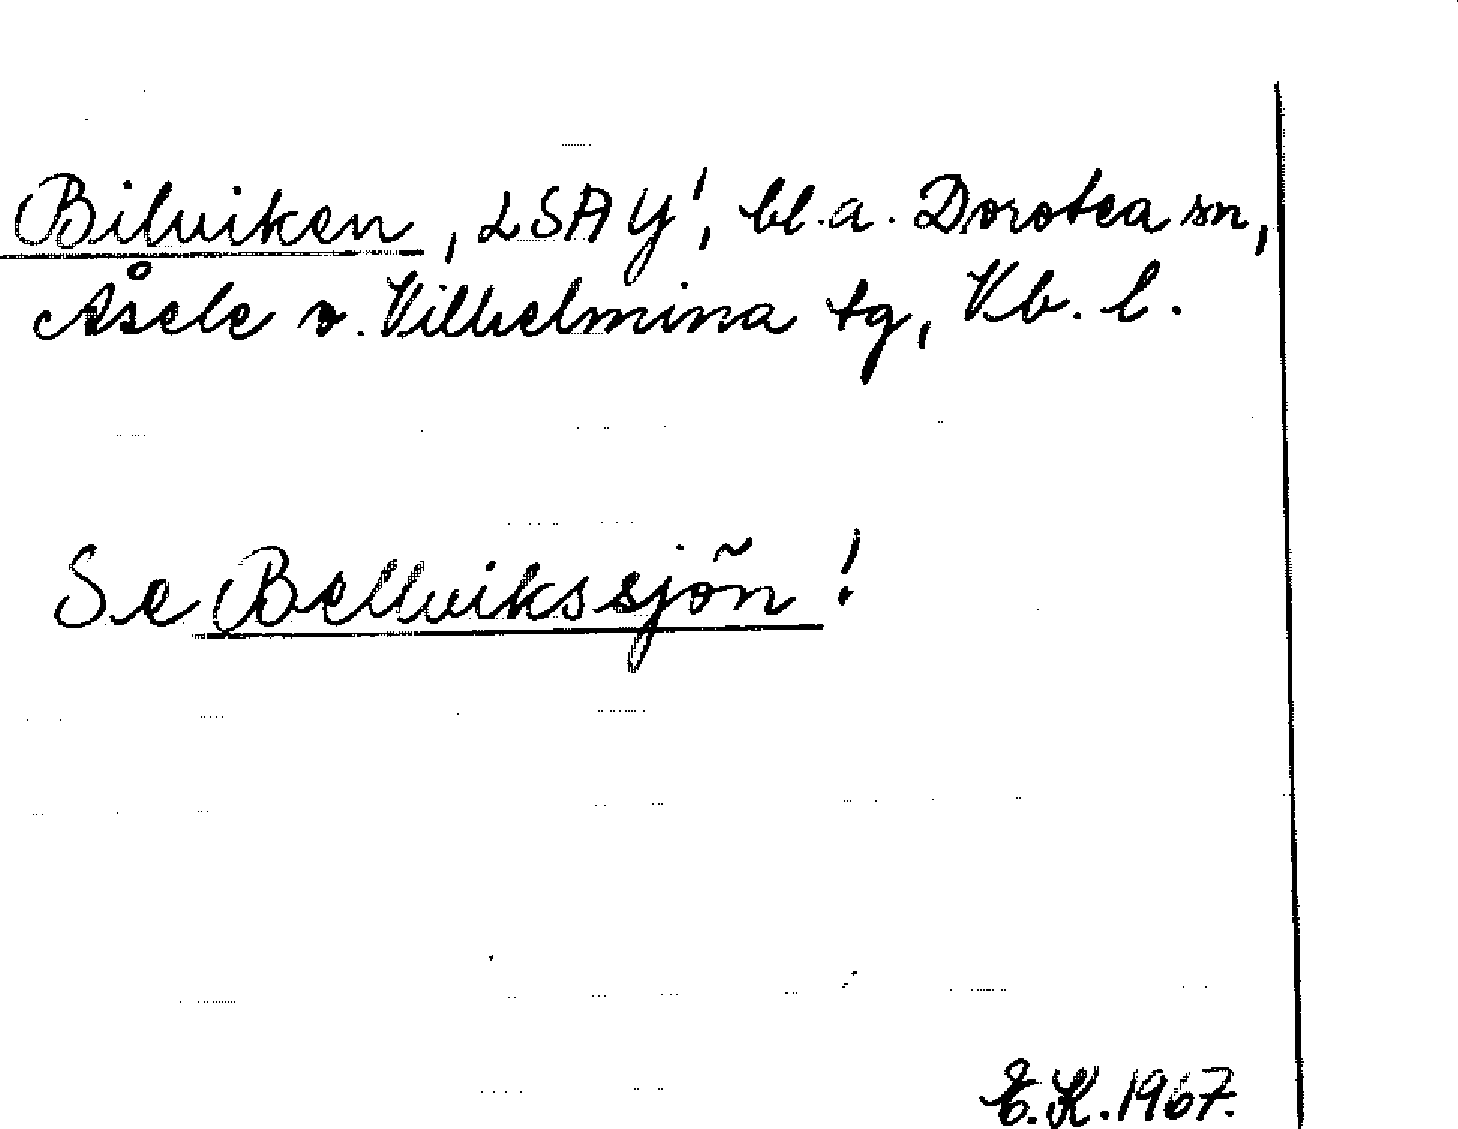 Bilviken, LSAY', bl.a. Dorotea sn,
Åsele o. Vilhelmina tg, Vb. l.
Se Bellvikssjön!
E.K. 1967.